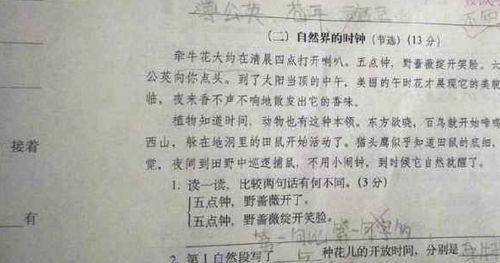 蒲公英
(二)自然界的时钟(节选)(13分)
牵牛花大约在清晨四点打开喇叭。五点钟,野蔷薇绽开笑脸。六
公英向你点头。到了太阳当顶的中午,美丽的午时花才展现它的美貌
临,夜来香不声不响地散发出它的香味。
植物知道时间,动物也有这种本领。东方欲晓,百鸟就开始啼鸣
西山,躲在地洞里的田鼠开始活动了。猫头鹰似乎知道田鼠的底细,
接着
觉,夜间到田野中巡逻捕鼠,不用小闹钟,到时候它自然就醒了。
1. 读一读,比较两句话有何不同。(3分)
五点钟,野蔷薇开了。
五点钟,野蔷薇绽开笑脸。
有
第一句比第一句
2. 第1自然段写了 5 种花儿的开放时间,分别是